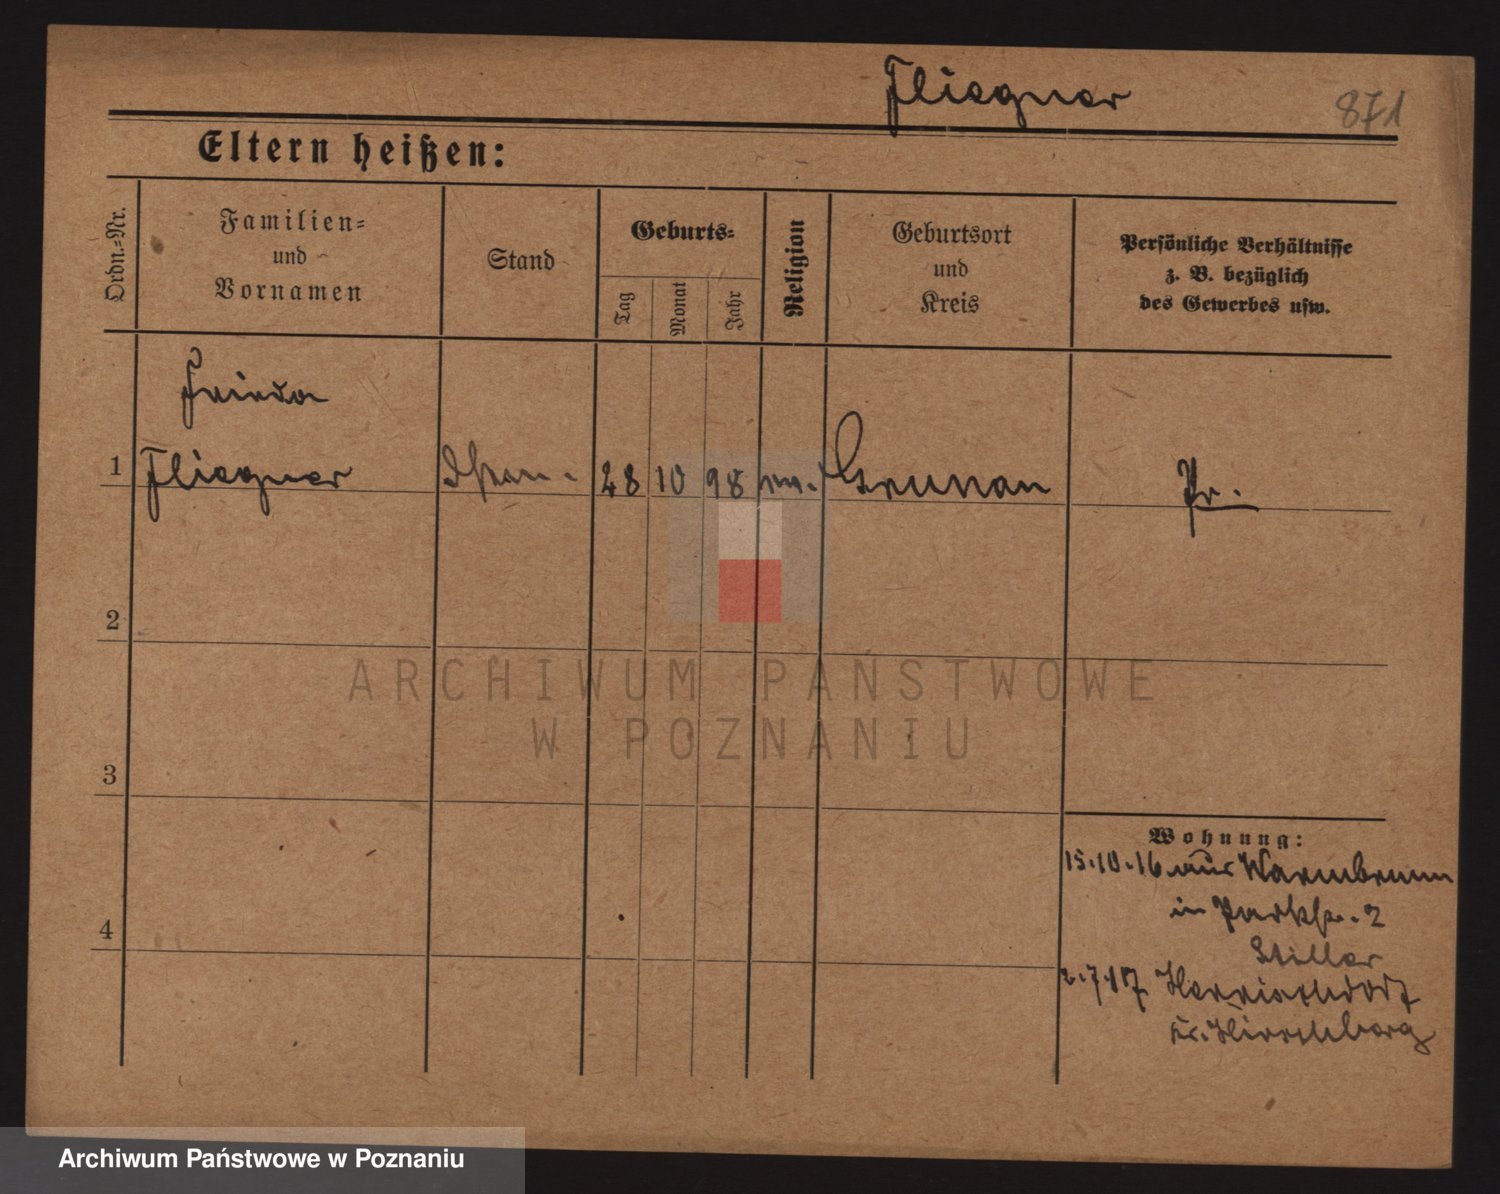 Fliegner
871
Eltern heißen:
Ordn.-Nr.
Familien-
und
Vornamen
Stand
Geburts-
Tag
Monat
Jahr
Religion
Geburtsort
und
Kreis
Persönliche Verhältnisse
z. B. bezüglich
des Gewerbes usw.
Frieda
1 Fliegner 28 10 98 Grunau Pr.
2
3
4
ARCHIWUM PAŃSTWOWE
W POZNANIU
Wohnung:
15.10.16 aus Warmbrunn
in Parkstr. 2
Stiller
2.7.17 Herrischdorf
Kr. Hirschberg
Archiwum Państwowe w Poznaniu